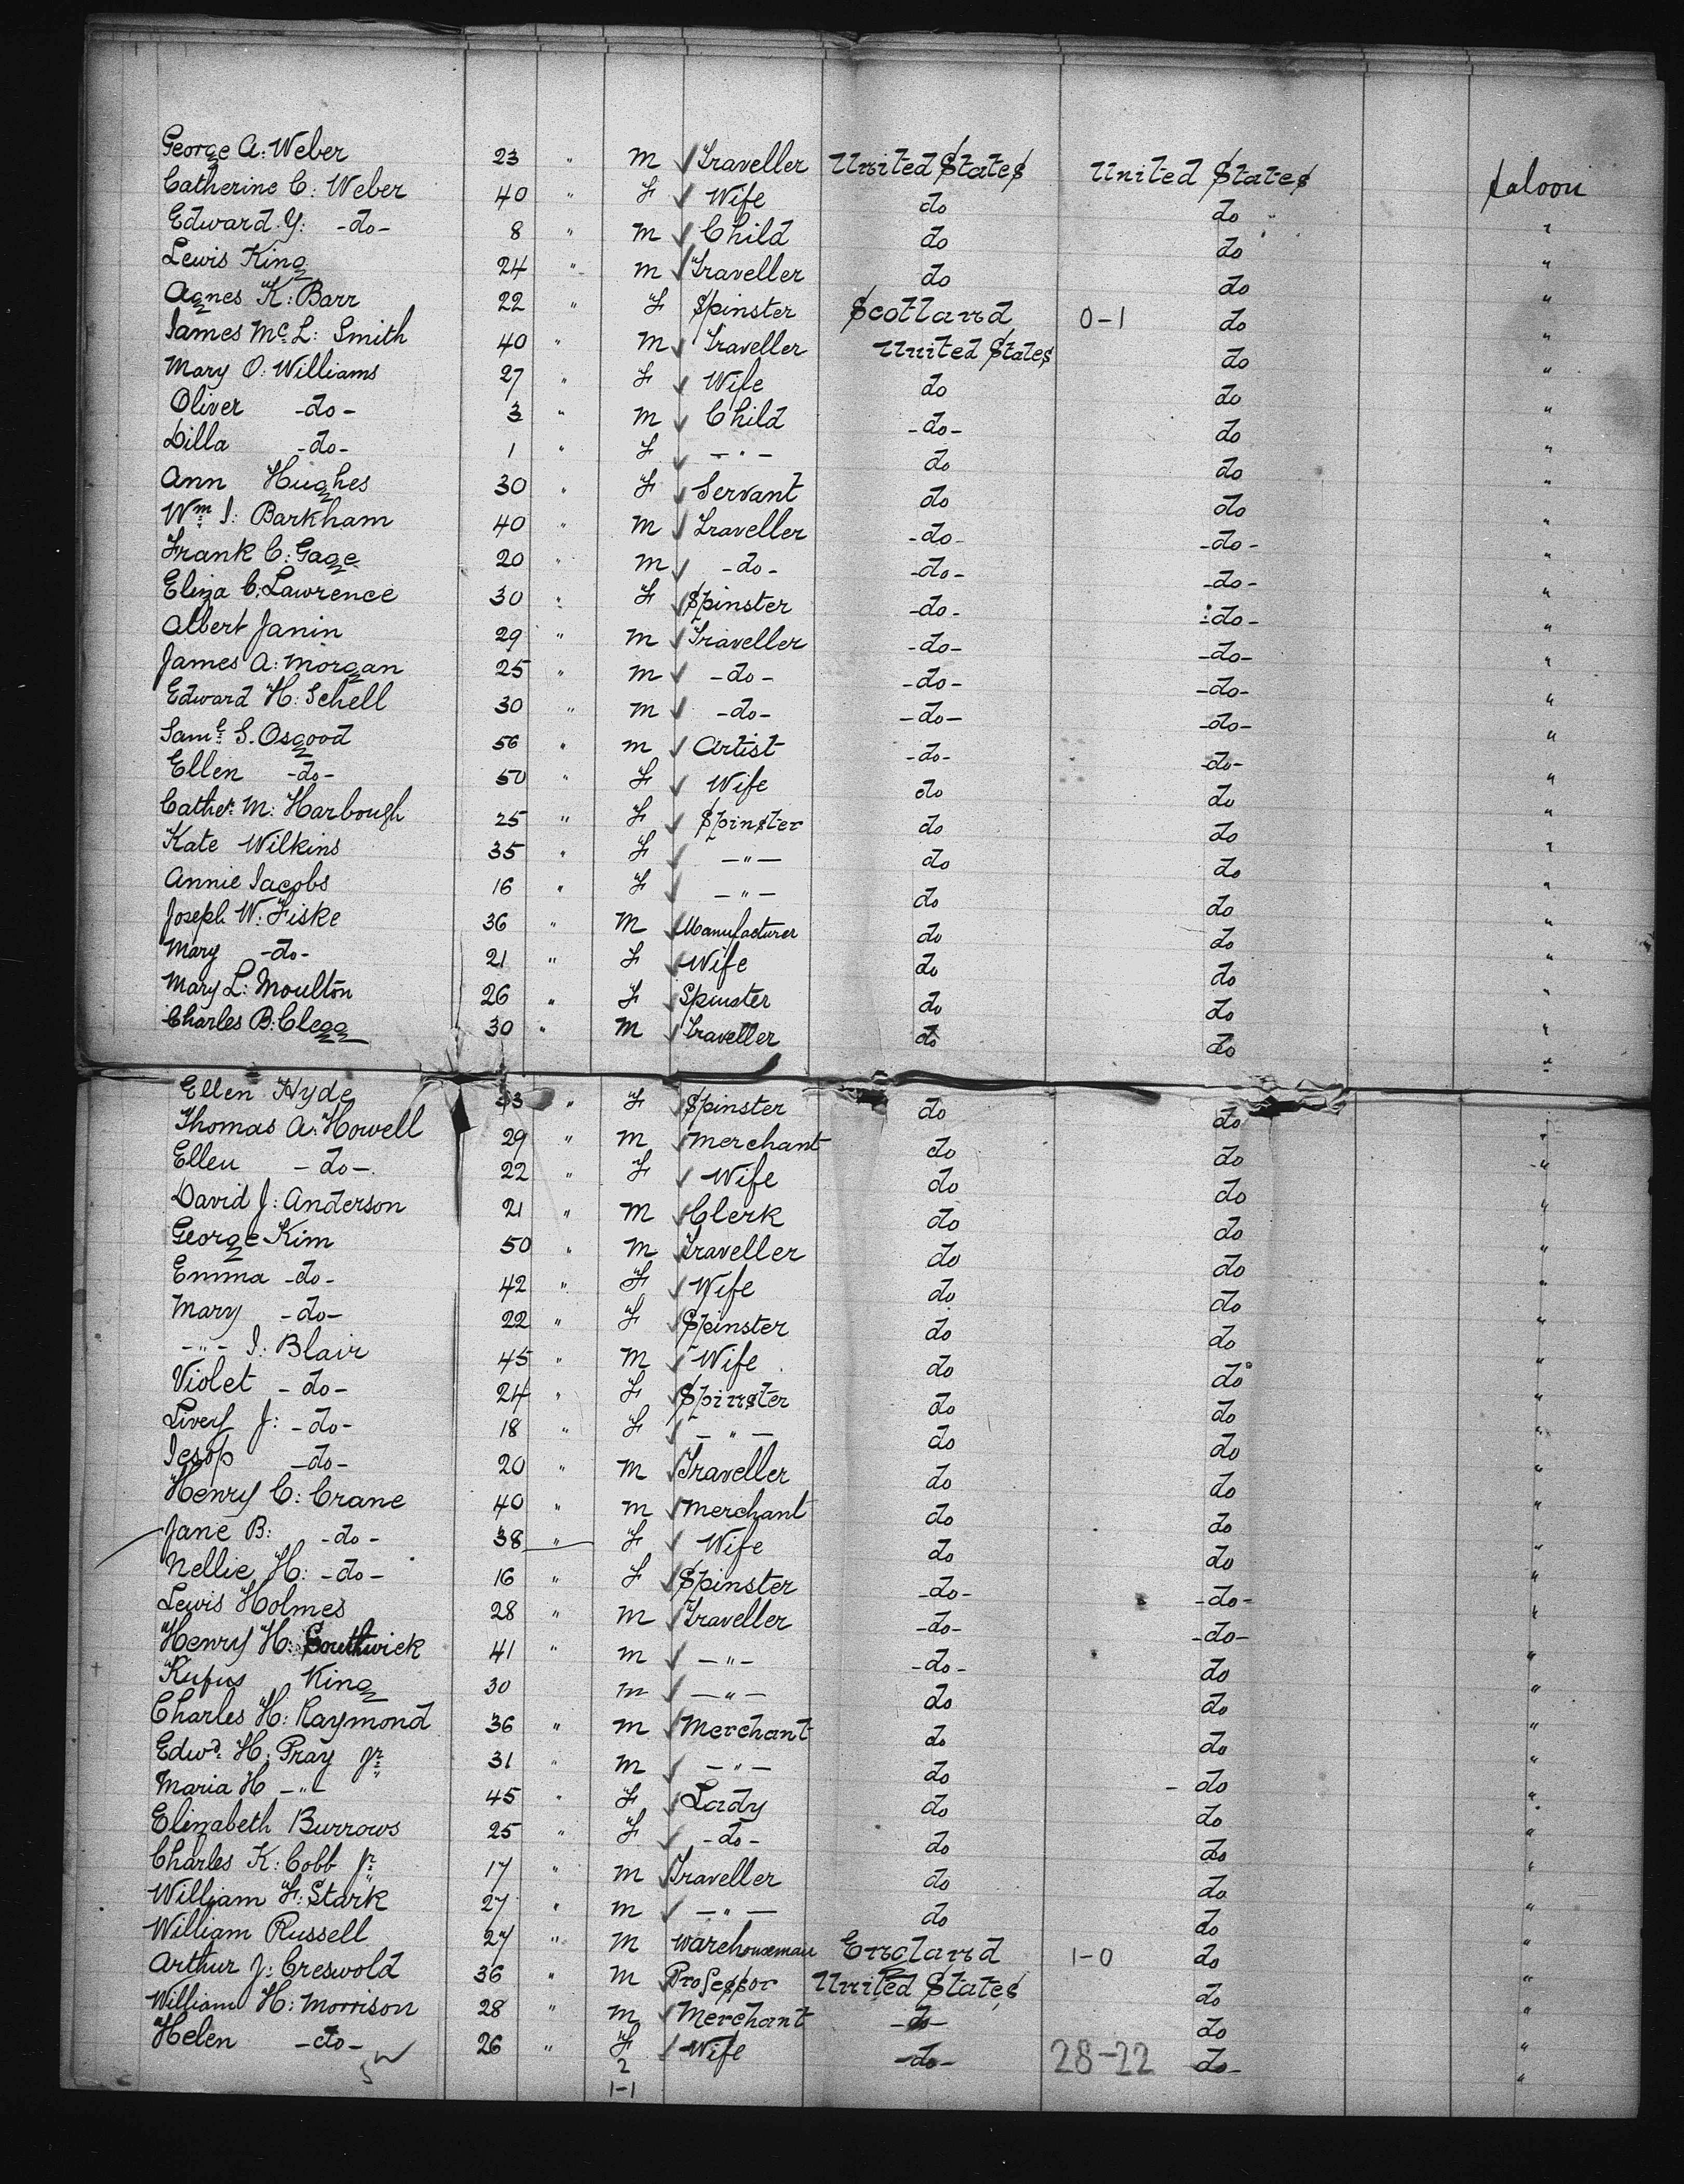 George A: Weber 23 " M Traveller United States United States Saloon
Catherine C: Weber 40 " F Wife do do "
Edward Y: -do- 8 " M Child do do "
Lewis King 24 " M Traveller do do "
Agnes K: Barr 22 " F Spinster Scotland 0-1 do "
James McL: Smith 40 " M Traveller United States do "
Mary O: Williams 27 " F Wife do do "
Oliver -do- 3 " M Child -do- do "
Dilla -do- 1 " F -"- do do "
Ann Hughes 30 " F Servant do do "
Wm J: Barkham 40 " M Traveller -do- -do- "
Frank C: Gage 20 " M -do- -do- -do- "
Eliza C: Lawrence 30 " F Spinster -do- -do- "
Albert Janin 29 " M Traveller -do- -do- "
James A: Morgan 25 " M -do- -do- -do- "
Edward H: Schell 30 " M -do- -do- -do- "
Saml S. Osgood 56 " M Artist -do- -do- "
Ellen -do- 50 " F Wife do do "
Cather. M: Harbough 25 " F Spinster do do "
Kate Wilkins 35 " F -"- do do "
Annie Jacobs 16 " F -"- do do "
Joseph W: Fiske 36 " M Manufacturer do do "
Mary -do- 21 " F Wife do do "
Mary L: Moulton 26 " F Spinster do do "
Charles B: Clegg 30 " M Traveller do do "
Ellen Hyde 33 " F Spinster do do "
Thomas A: Howell 29 " M Merchant do do "
Ellen -do- 22 " F Wife do do "
David J: Anderson 21 " M Clerk do do "
George Kim 50 " M Traveller do do "
Emma -do- 42 " F Wife do do "
Mary -do- 22 " F Spinster do do "
-"- J: Blair 45 " M Wife do do "
Violet -do- 24 " F Spinster do do "
J: -do- 18 " F -"- do do "
Jesop -do- 20 " M Traveller do do "
Henry C: Crane 40 " M Merchant do do "
Jane B: -do- 38 " F Wife do do "
Nellie H: -do- 16 " F Spinster -do- -do- "
Lewis Holmes 28 " M Traveller -do- -do- "
Henry H: Southwick 41 " M -"- -do- do "
Rufus King 30 M -"- do do "
Charles H: Raymond 36 " M Merchant do do "
Edwd. H: Pray Jr 31 " M -"- do do "
Maria H -"- 45 " F Lady do do "
Elizabeth Burrows 25 " F -do- do do "
Charles K: Cobb Jr 17 " M Traveller do do "
William F: Stark 27 " M -"- do do "
William Russell 27 " M Warehouseman England 1-0 do "
Arthur J: Creswold 36 " M Professor United States do "
William H: Morrison 28 " M Merchant -do- do "
Helen -do- 26 " F Wife -do- 28-22 do- "
2
1-1